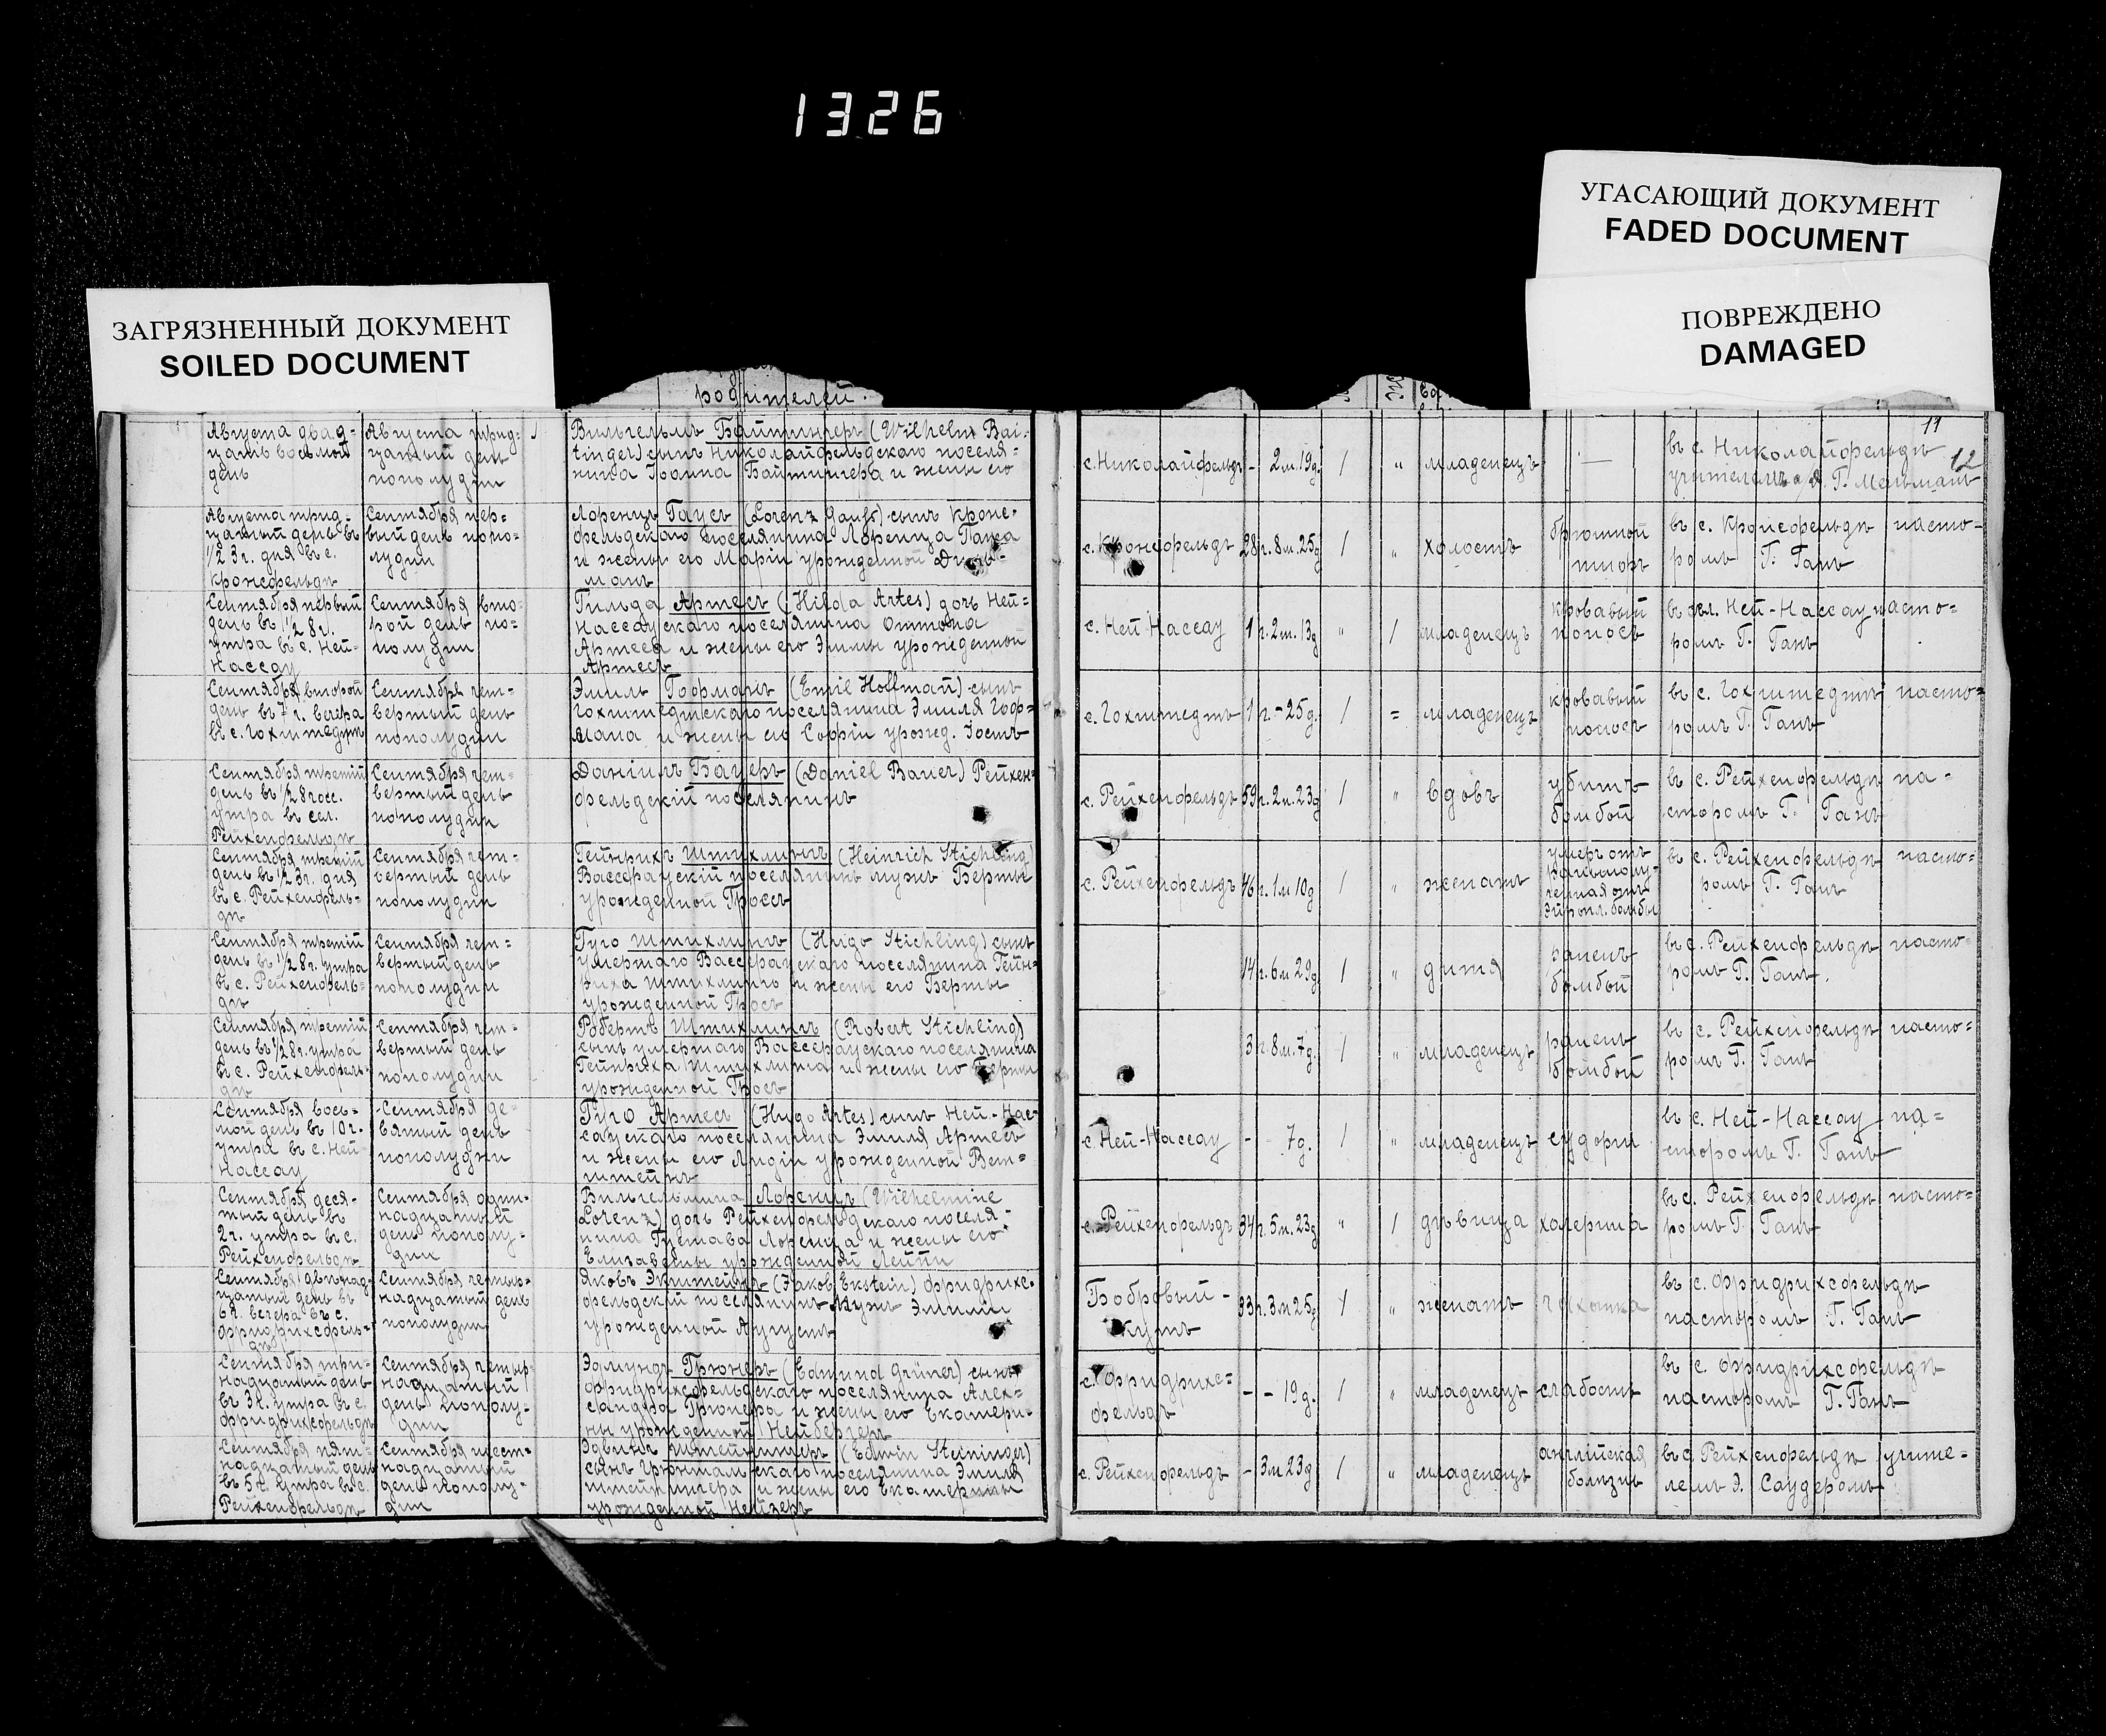 1326
УГАСАЮЩИЙ ДОКУМЕНТ
FADED DOCUMENT
ПОВРЕЖДЕНО
DAMAGED
ЗАГРЯЗНЕННЫЙ ДОКУМЕНТ
SOILED DOCUMENT
родителей.
11
12
Августа двад-
цать восьмой
день
Августа трид-
цатый день
пополудни
Вильгельмъ Байтингеръ (Wilhelm Bai-
tinger) сынъ Николайфельдскаго поселя-
нина Іоанна Байтингера и жены его
с. Николайфельдъ - 2 м. 19 д. 1 " младенецъ —
въ с. Николайфельдѣ
учителемъ Г. Мельманъ
Августа трид-
цатый день въ
1/2 3 г. дня въ с.
Кронсфельдѣ
Сентября пер-
вый день попо-
лудни
Лоренцъ Гаусъ (Lorenz Gauss) сынъ Кронс-
фельдскаго поселянина Лоренца Гауса
и жены его Маріи урожденной
манъ
с. Кронсфельдъ 28 г. 8 м. 25 д. 1 " холостъ
брюшной
тифъ
въ с. Кронсфельдѣ насто-
ромъ Г. Ганъ
Сентября первый
день въ 1/2 8 г.
утра въ с. Ней-
Нассау
Сентября вто-
рой день по-
полудни
Гильда Артесъ (Hilda Artes) дочь Ней-
Нассаускаго поселянина Оттона
Артеса и жены его Эммы урожденной
Артесъ
с. Ней Нассау 1 г. 2 м. 13 д. " 1 младенецъ
кровавый
поносъ
въ сел. Ней-Нассау пасто-
ромъ Г. Ганъ
Сентября второй
день въ 7 г. вечера
въ с. Гохштедтъ
Сентября чет-
вертый день
пополудни
Эмиль Гофманъ (Emil Hoffman) сынъ
Гохштедтскаго поселянина Эмиля Гоф-
мана и жены его Софіи урожд. Іостъ
с. Гохштедтъ 1 г. - 25 д. 1 = младенецъ
кровавый
поносъ
въ с. Гохштедтѣ пасто-
ромъ Г. Ганъ
Сентября третій
день въ 1/2 8 час.
утра въ сел.
Рейхенфельдѣ
Сентября чет-
вертый день
пополудни
Даніилъ Бауеръ (Daniel Bauer) Рейхен-
фельдскій поселянинъ
с. Рейхенфельдъ 59 г. 2 м. 23 д. 1 " вдовъ
убитъ
бомбой
въ с. Рейхенфельдѣ па-
сторомъ Г. Ганъ
Сентября третій
день въ 1/2 3 г. дня
въ с. Рейхенфель-
дѣ
Сентября чет-
вертый день
пополудни
Гейнрихъ Штихлингъ (Heinrich Stichling)
Вассераускій поселянинъ мужъ Берты
урожденной Гроссъ
с. Рейхенфельдъ 46 г. 1 м. 10 д. 1 " женатъ
умеръ отъ
въ с. Рейхенфельдѣ пасто-
ромъ Г. Ганъ
Сентября третій
день въ 1/2 8 г. утра
въ с. Рейхенфель-
дѣ
Сентября чет-
вертый день
пополудни
Гуго Штихлингъ (Hugo Stichling) сынъ
умершаго Вассераускаго поселянина Гейн-
риха Штихлинга и жены его Берты
урожденной Гросъ
14 г. 6 м. 29 д. 1 " дитя
раненъ
бомбой
въ с. Рейхенфельдѣ пасто-
ромъ Г. Ганъ.
Сентября третій
день въ 1/2 8 г. утра
въ с. Рейхенфель-
дѣ
Сентября чет-
вертый день
пополудни
Робертъ Штихлингъ (Robert Stichling)
сынъ умершаго Вассераускаго поселянина
Гейнриха Штихлинга и жены его Берты
урожденной Гросъ
3 г. 8 м. 7 д. 1 " младенецъ
раненъ
бомбой
въ с. Рейхенфельдѣ пасто-
ромъ Г. Ганъ
Сентября вось-
мой день въ 10 г.
утра въ с. Ней
Нассау
Сентября де-
вятый день
пополудни
Гуго Артесъ (Hugo Artes) сынъ Ней-Нас-
саускаго поселянина Эмиля Артесъ
и жены его Лидіи урожденной Вет-
штейнъ
с. Ней-Нассау - - 7 д. 1 " младенецъ судорги
въ с. Ней-Нассау па-
сторомъ Г. Ганъ
Сентября деся-
тый день въ
2 г. утра въ с.
Рейхенфельдѣ
Сентября один-
надцатый
день пополу-
дни
Вильгельмина Лоренцъ (Wilhelmine
Lorenz) дочь Рейхенфельдскаго поселя-
нина Густава Лоренца и жены его
Елизаветы урожденной Леппи
с. Рейхенфельдъ 34 г. 5 м. 23 д. " 1 дѣвица холерина
въ с. Рейхенфельдѣ пасто-
ромъ Г. Ганъ
Сентября двѣнад-
цатый день въ
6 г. вечера въ с.
Фридрихсфель-
дѣ
Сентября четыр-
надцатый день
пополудни
Яковъ Экштейнъ (Jakob Ekstein) Фридрихс-
фельдскій поселянинъ мужъ Эмиліи
урожденной Аугустъ
Бобровый-
Кутъ
33 г. 3 м. 25 д. 1 " женатъ чахотка
въ с. Фридрихсфельдѣ
пасторомъ Г. Ганъ
Сентября три-
надцатый день
въ 3 г. утра въ с.
Фридрихсфельдѣ
Сентября четыр-
надцатый
день пополу-
дни
Эдмундъ Грюнеръ (Edmund Grüner) сынъ
Фридрихсфельдскаго поселянина Алек-
сандра Грюнера и жены его Екатери-
ны урожденной Нейбергеръ
с. Фридрихс-
фельдъ
- - 19 д. 1 " младенецъ слабость
въ с. Фридрихсфельдѣ
пасторомъ Г. Ганъ
Сентября пят-
надцатый день
въ 5 г. утра въ с.
Рейхенфельдѣ
Сентября шест-
надцатый
день пополу-
дни
Эдвинъ Штейнингеръ (Edwin Steininger)
сынъ Грюнтальскаго поселянина Эмиля
Штейнингера и жены его Екатерины
урожденной Нейзеръ
с. Рейхенфельдъ - 3 м. 23 д. 1 " младенецъ
англійская
болѣзнь
въ с. Рейхенфельдѣ учите-
лемъ Э. Саудеромъ